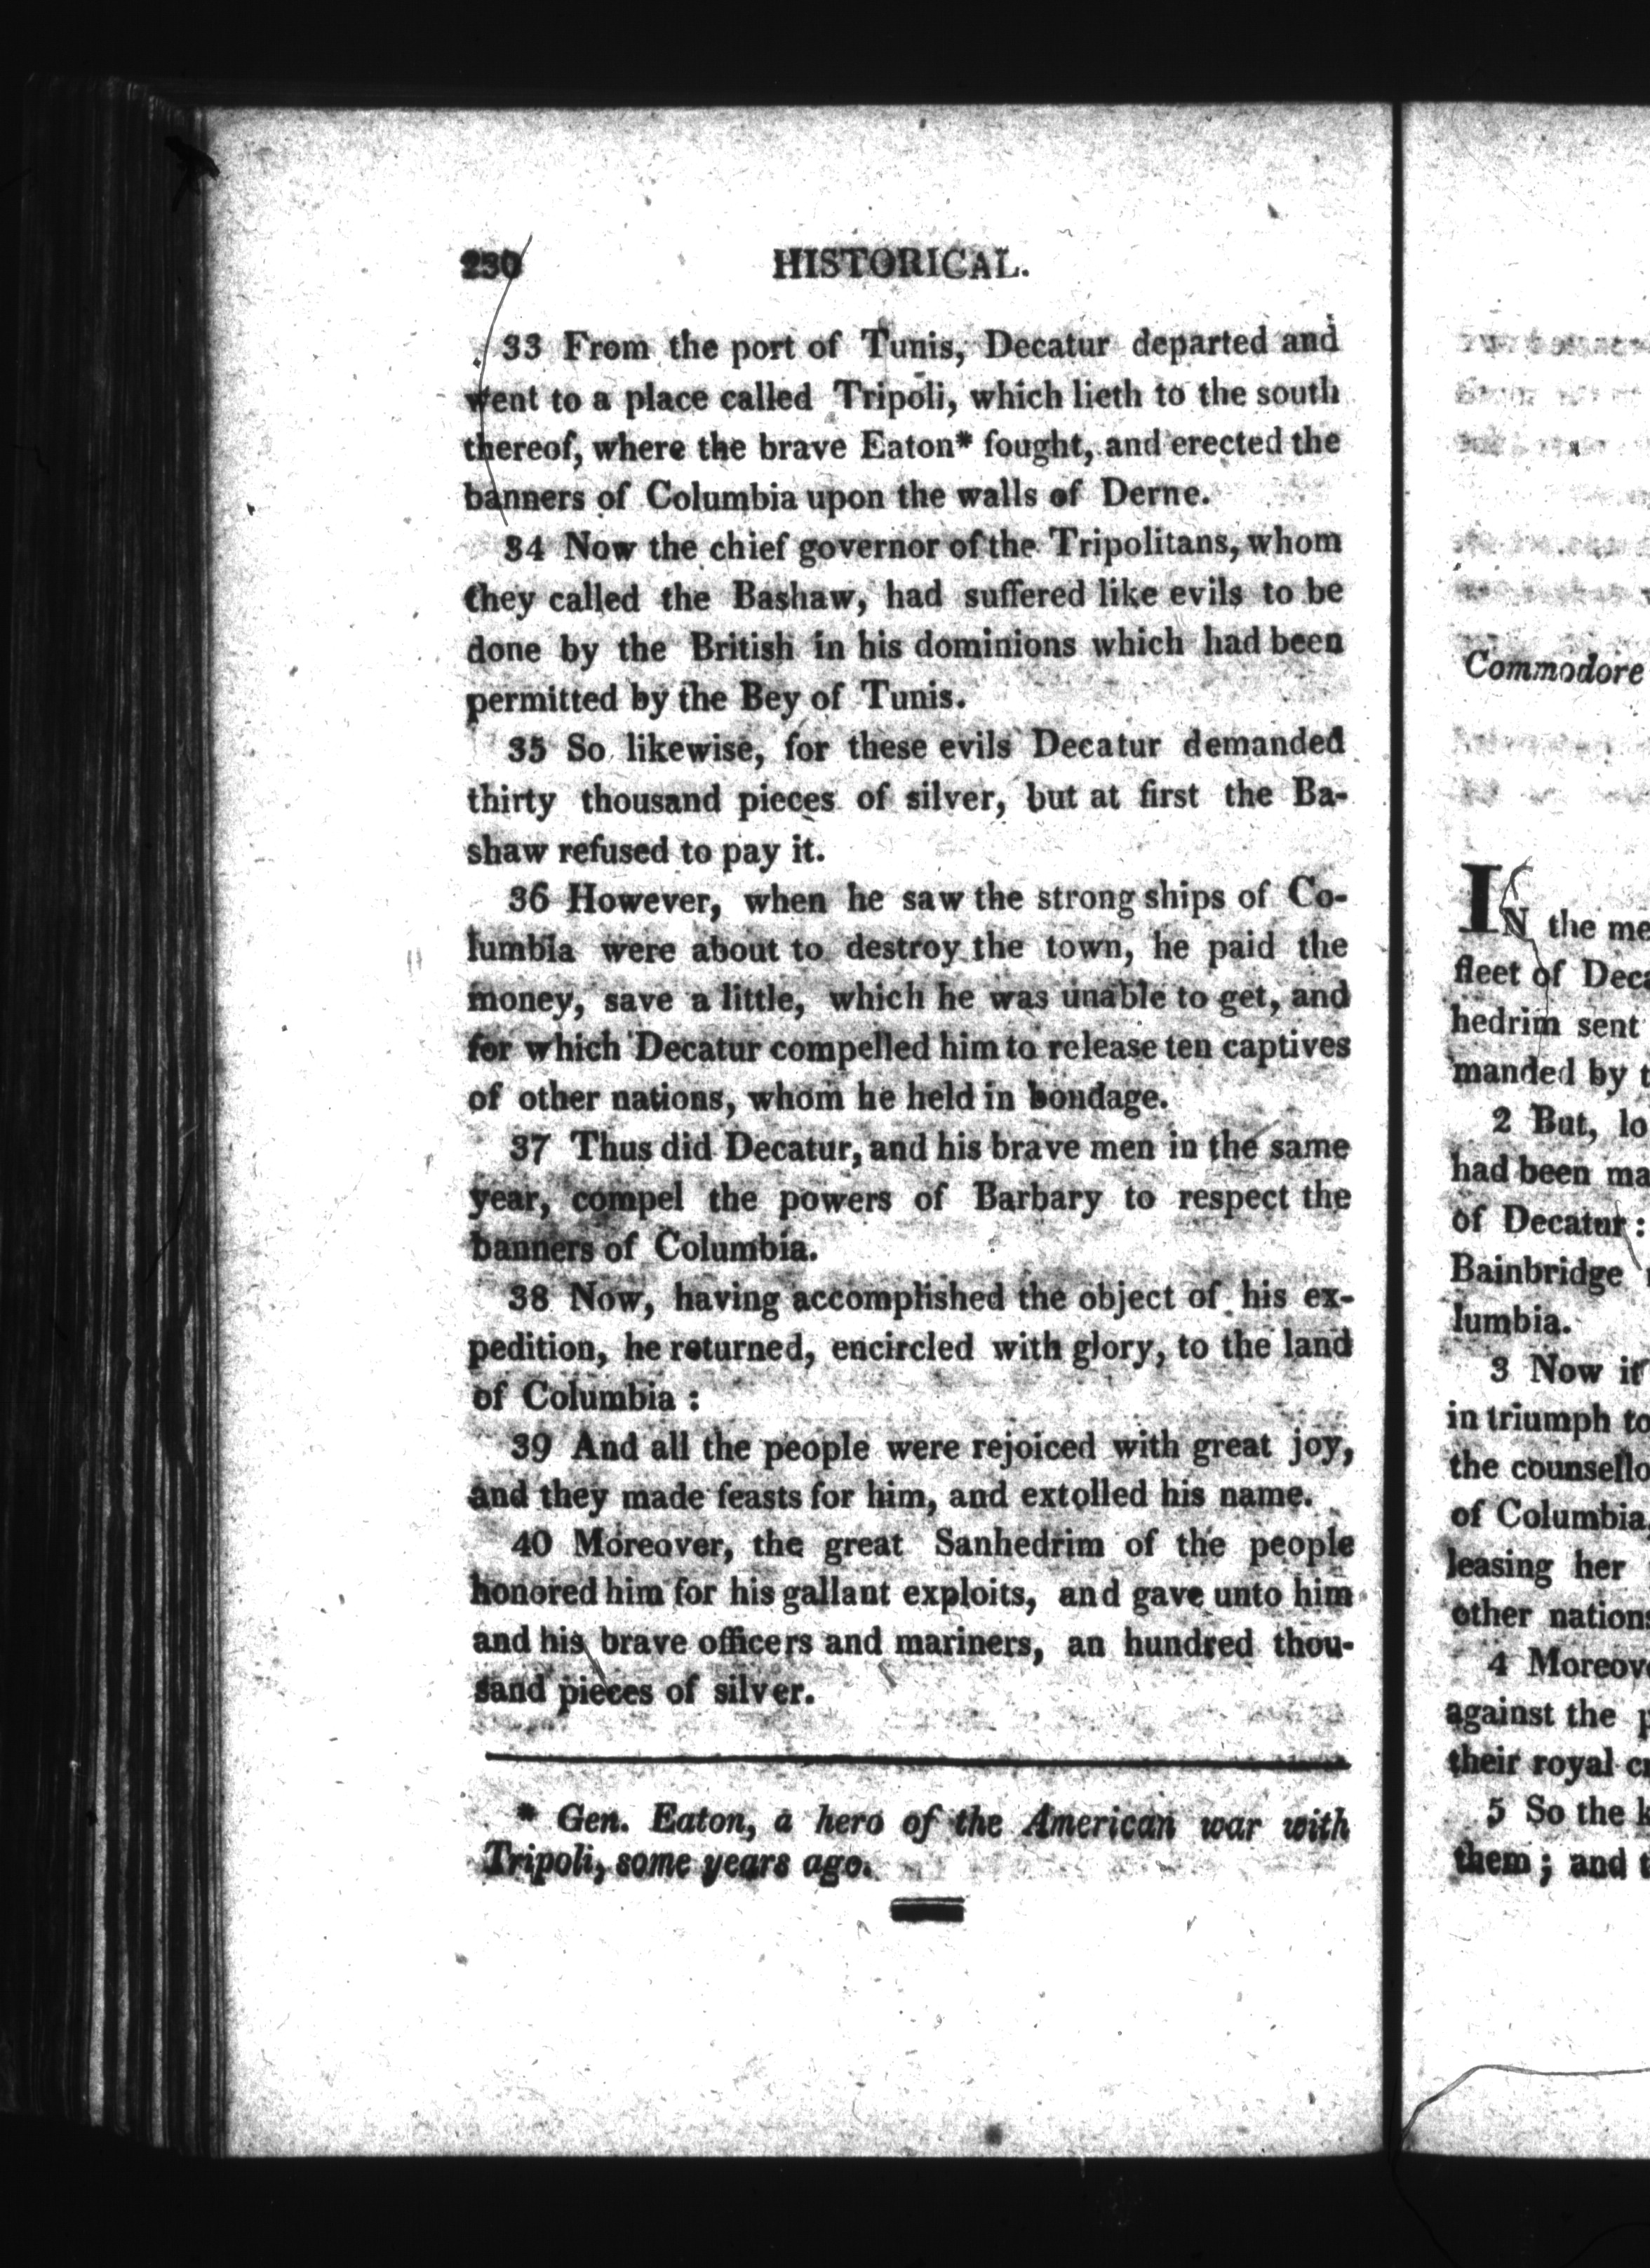 230 HISTORICAL.
33 From the port of Tunis, Decatur departed and
went to a place called Tripoli, which lieth to the south
thereof, where the brave Eaton* fought, and erected the
banners of Columbia upon the walls of Derne.
34 Now the chief governor of the Tripolitans, whom
they called the Bashaw, had suffered like evils to be
done by the British in his dominions which had been
permitted by the Bey of Tunis.
35 So likewise, for these evils Decatur demanded
thirty thousand pieces of silver, but at first the Ba-
shaw refused to pay it.
36 However, when he saw the strong ships of Co-
lumbia were about to destroy the town, he paid the
money, save a little, which he was unable to get, and
for which Decatur compelled him to release ten captives
of other nations, whom he held in bondage.
37 Thus did Decatur, and his brave men in the same
year, compel the powers of Barbary to respect the
banners of Columbia.
38 Now, having accomplished the object of his ex-
pedition, he returned, encircled with glory, to the land
of Columbia :
39 And all the people were rejoiced with great joy,
and they made feasts for him, and extolled his name.
40 Moreover, the great Sanhedrim of the people
honored him for his gallant exploits, and gave unto him
and his brave officers and mariners, an hundred thou-
sand pieces of silver.
* Gen. Eaton, a hero of the American war with
Tripoli, some years ago.
Commodore
IN the me
fleet of Deca
hedrim sent
manded by t
2 But, lo
had been ma
of Decatur :
Bainbridge
lumbia.
3 Now it
in triumph to
the counsello
of Columbia,
leasing her
other nation
4 Moreov
against the p
their royal cr
5 So the k
them ; and t